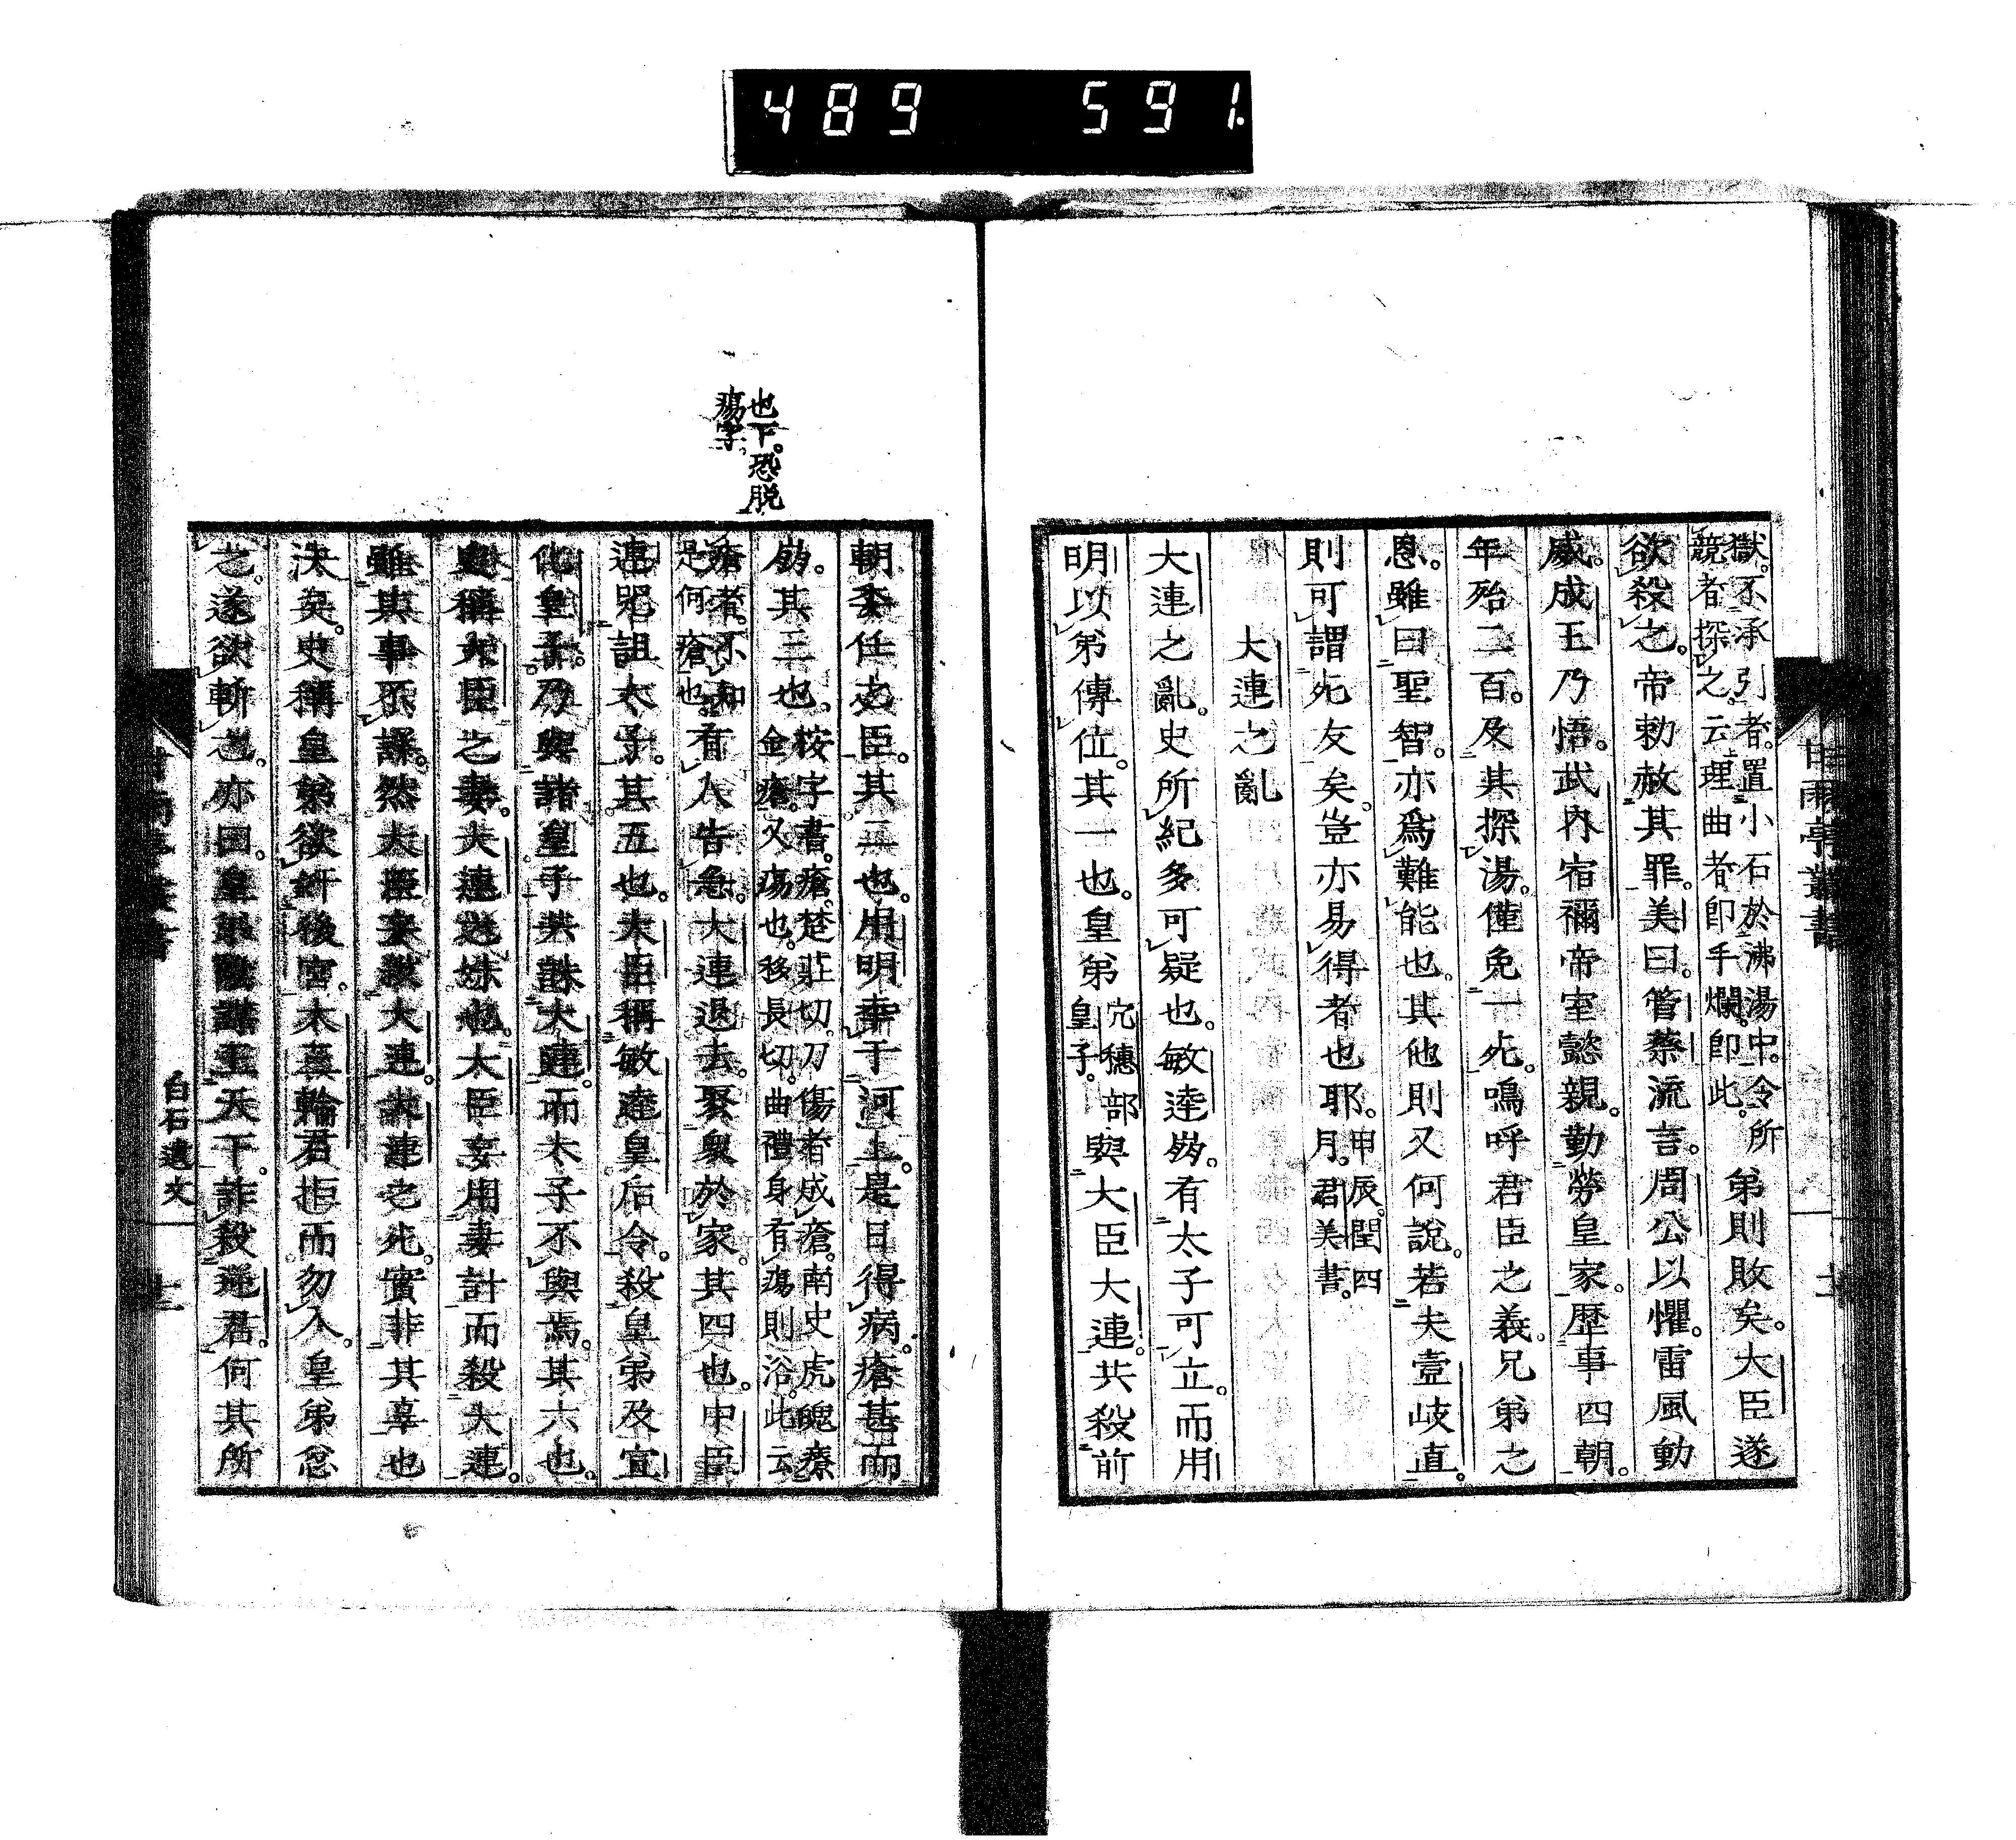 489 591.
獄。不承引者。置小石於沸湯中。令所
競者探之。云理曲者即手爛。即此。弟則敗矣。大臣遂
欲殺之。帝勅赦其罪。美曰。管蔡流言。周公以懼。雷風動
威。成王乃悟。武內宿禰帝室懿親。勤勞皇家。歷事四朝。
年殆二百。及其探湯。僅免一死。嗚呼君臣之義。兄弟之
恩。雖曰聖智。亦爲難能也。其他則又何說。若夫壹岐直。
則可謂死友矣。豈亦易得者也耶。甲辰。閏四
月。君美書。
大連之亂
大連之亂。史所紀多可疑也。敏達崩。有太子可立。而用
明以弟傳位。其一也。皇弟穴穗部
皇子。與大臣大連。共殺前
朝委任之臣。其二也。用明幸于河上。是日得病。瘡甚而
崩。其三也。按字書。瘡。楚莊切。刀傷者成瘡。南史虎魄療
金瘡。又瘍也。移長切。曲禮身有瘍則浴。此云
瘡者。不知
是何瘡也。有人告急。大連退去。聚衆於家。其四也。中臣
連呪詛太子。其五也。大臣稱敏達皇后令。殺皇弟及宣
化皇子。乃與諸皇子共誅大連。而太子不與焉。其六也。
史稱大臣之妻。大連之妹也。大臣妄用妻計而殺大連。
雖其事不諜。然大臣妄殺大連。大連之死。實非其辜也
決矣。史稱皇弟欲奸後宮。大三輪君拒而勿入。皇弟忿
之。遂欲斬之。亦曰。皇弟陰謀王天下。詐殺逆君。何其所
也下。恐脫
瘍字。
甘雨亭叢書
白石遺文